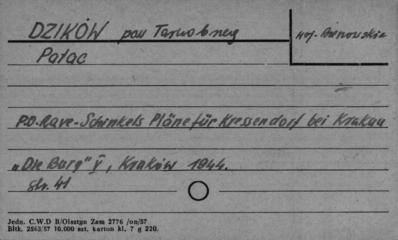 DZIKÓW pow Tarnobrzeg
woj.
Pałac
P.O. Rave-Schinkels Pläne für Kressendorf bei Krakau
„Die Burg" V, Kraków 1944.
str. 41
Jedn. C.W.D B/Olsztyn Zam 2776 /on/57
Bltk. 2563/57 10.000 szt. karton kl. 7 g 220.